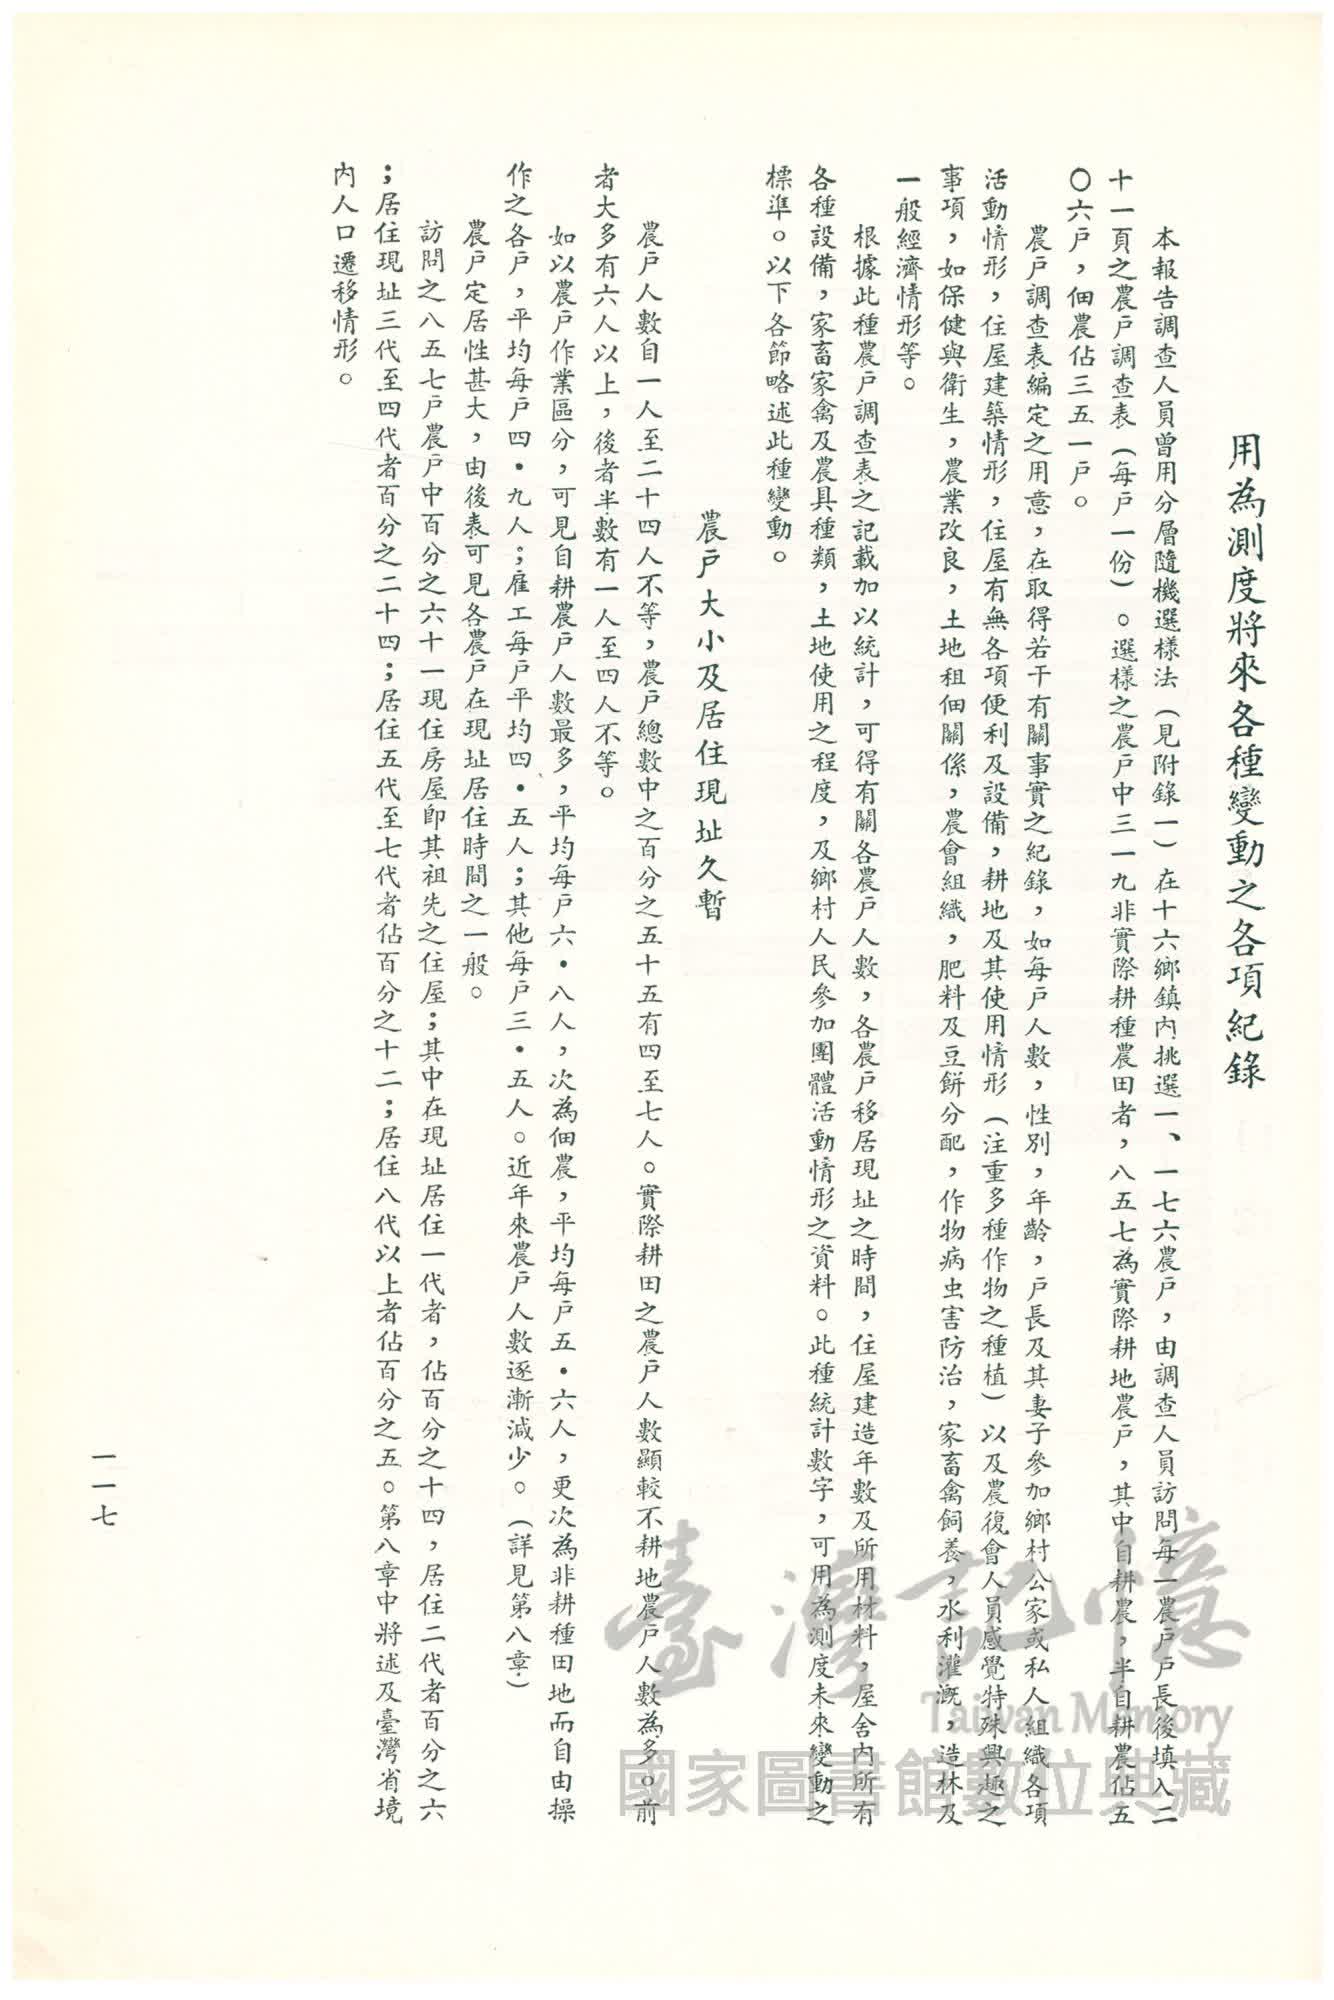 用為測度將來各種變動之各項紀錄
本報告調查人員曾用分層隨機選樣法（見附錄一）在十六鄉鎮內挑選一、一七六農戶，由調查人員訪問每一農戶戶長後填入二
十一頁之農戶調查表（每戶一份）。選樣之農戶中三一九非實際耕種農田者，八五七為實際耕地農戶，其中自耕農，半自耕農佔五
〇六戶，佃農佔三五一戶。
農戶調查表編定之用意，在取得若干有關事實之紀錄，如每戶人數，性別，年齡，戶長及其妻子參加鄉村公家或私人組織各項
活動情形，住屋建築情形，住屋有無各項便利及設備，耕地及其使用情形（注重多種作物之種植）以及農復會人員感覺特殊興趣之
事項，如保健與衛生，農業改良，土地租佃關係，農會組織，肥料及豆餅分配，作物病虫害防治，家畜禽飼養，水利灌溉，造林及
一般經濟情形等。
根據此種農戶調查表之記載加以統計，可得有關各農戶人數，各農戶移居現址之時間，住屋建造年數及所用材料，屋舍內所有
各種設備，家畜家禽及農具種類，土地使用之程度，及鄉村人民參加團體活動情形之資料。此種統計數字，可用為測度未來變動之
標準。以下各節略述此種變動。
農戶大小及居住現址久暫
農戶人數自一人至二十四人不等，農戶總數中之百分之五十五有四至七人。實際耕田之農戶人數顯較不耕地農戶人數為多。前
者大多有六人以上，後者半數有一人至四人不等。
如以農戶作業區分，可見自耕農戶人數最多，平均每戶六・八人，次為佃農，平均每戶五・六人，更次為非耕種田地而自由操
作之各戶，平均每戶四・九人；雇工每戶平均四・五人；其他每戶三・五人。近年來農戶人數逐漸減少。（詳見第八章）
農戶定居性甚大，由後表可見各農戶在現址居住時間之一般。
訪問之八五七戶農戶中百分之六十一現住房屋卽其祖先之住屋；其中在現址居住一代者，佔百分之十四，居住二代者百分之六
；居住現址三代至四代者百分之二十四；居住五代至七代者佔百分之十二；居住八代以上者佔百分之五。第八章中將述及臺灣省境
內人口遷移情形。
一一七
臺灣記憶
Taiwan Memory
國家圖書館數位典藏